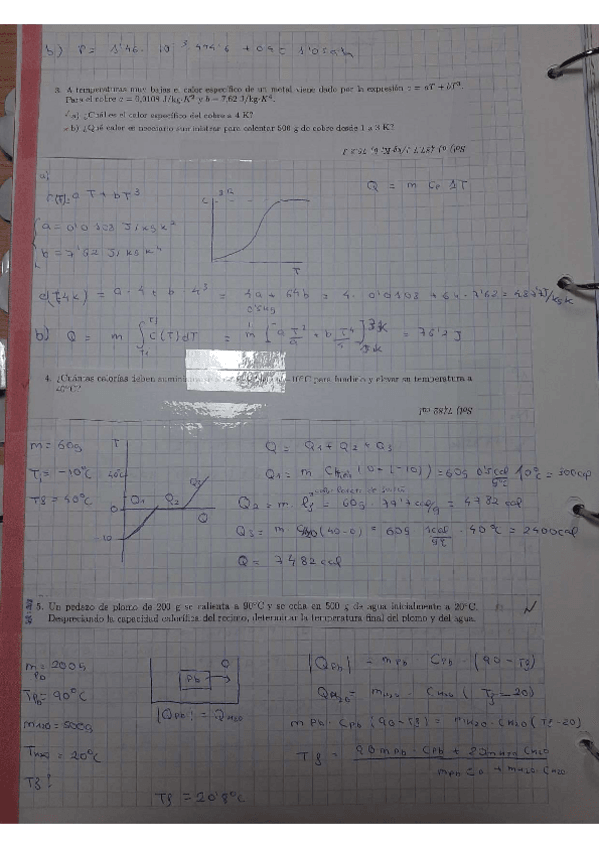 b) P = 1'46 · 10
3. A temperaturas muy bajas el calor específico de un metal viene dado por la expresión c = aT + bT³.
Para el cobre a = 0,0108 J/kg·K² y b = 7,62 J/kg·K⁴.
a) ¿Cuál es el calor específico del cobre a 4 K?
b) ¿Qué calor es necesario suministrar para calentar 500 g de cobre desde 1 a 3 K?
Sol) a) 487,7 J/kg K; b) 76,2 J
a)
c(T) = aT + bT³
Q = m Cp ΔT
a = 0'0108 J/kg k²
b = 7'62 J/kg k⁴
C
T
c(T=4k) = a · 4 + b · 4³ = 4a + 64b = 4 · 0'0108 + 64 · 7'62 = 487'7 J/kg k
b) Q = m ∫ C(T) dT = m [a T²/2 + b T⁴/4] = 76'2 J
4. ¿Cuántas calorías deben 10°C para fundirlo y elevar su temperatura a
40°C?
Sol) 7482 cal
m = 60g
T₁ = -10°C
Tf = 40°C
T
40°C
0
10
Q1
Q2
Q3
Q
Q = Q1 + Q2 + Q3
Q1 = m C (0 - (-10)) = 60g 0'5 cal/g°C 10°C = 300 cal
Q2 = m · lf = 60g · 79'7 cal/g = 4782 cal
Q3 = m CH2O (40-0) = 60g 1cal/g°C · 40°C = 2400cal
Q = 7482 cal
5. Un pedazo de plomo de 200 g se calienta a 90°C y se echa en 500 g de agua inicialmente a 20°C.
Despreciando la capacidad calorífica del recinto, determinar la temperatura final del plomo y del agua.
m Pb = 200g
TPb = 90°C
mH2O = 500g
TH2O = 20°C
Tf?
Pb
Q
|QPb| = QH2O
|QPb| = mPb CPb (90 - Tf)
QH2O = mH2O · CH2O (Tf - 20)
mPb · CPb (90 - Tf) = mH2O · CH2O (Tf - 20)
Tf = 90 mPb · CPb + 20 mH2O CH2O / mPb CPb + mH2O · CH2O
Tf = 20'8°C